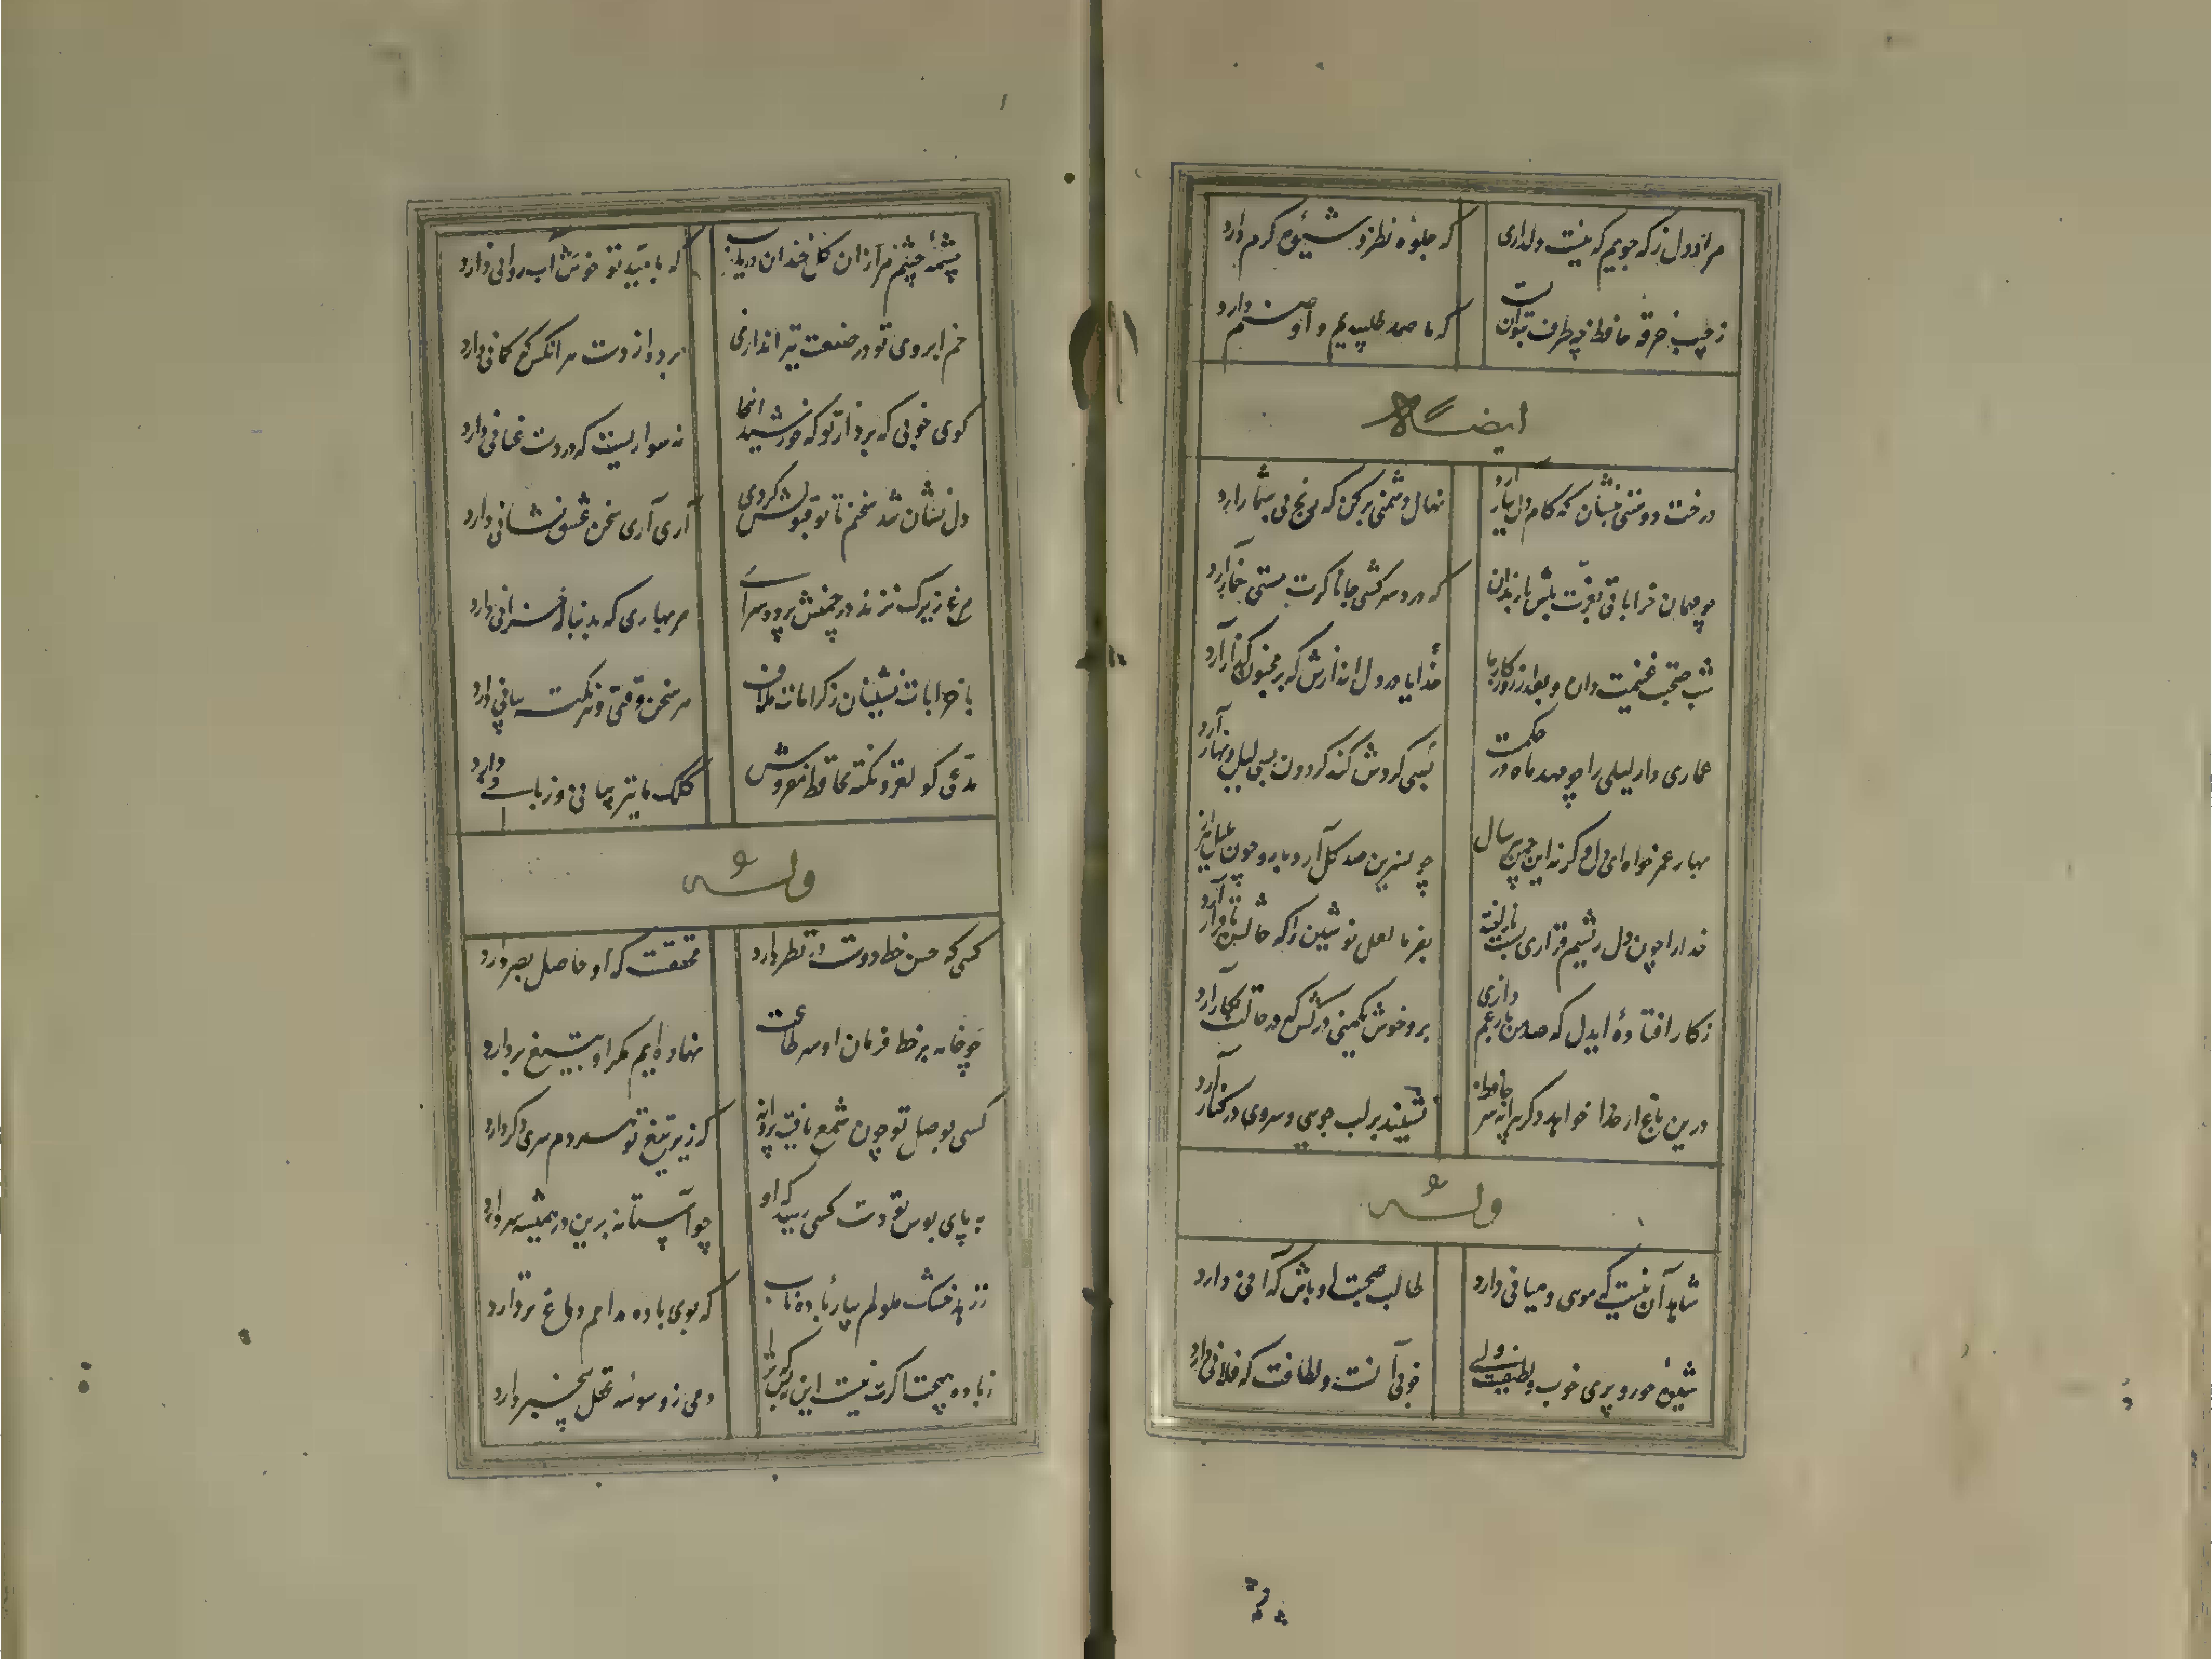 مراد دل ز که جویم که نیست دلداری
که جلوه نظر و شیوه کرم دارد
ز جیب خرقه حافظ چه طرف بتوان بست
که ما صمد طلبیدیم و او صنم دارد
ایضاله
درخت دوستی بنشان که کام دل ببار آرد
نهال دشمنی برکن که رنج بی شمار آرد
چو مهمان خراباتی بعزت باش با رندان
که درد سر کشی جانا کرت مستی خمار آرد
شب صحبت غنیمت دان و بعد از روزکار ما
خدایا در دل اندازش که بر مجنون گذار آرد
عماری دار لیلی را چو مهد ماه در حکمت
بسی کردش کند کردون بسی لیل و نهار آرد
بهار عمر خواه ای دل وکرنه این چمن هر سال
چو نسرین صد کل آرد بار و چون بلبل هزار آرد
خدارا چون دل ریشم قراری بست با زلفت
بفرما لعل نوشین را که حالش با قرار آرد
ز کار افتاده ای دل که صد من بار غم داری
برو خوش یکمنی درکش که در حالت بکار آرد
درین باغ ار خدا خواهد دکر پیرانه سر حافظ
نشیند بر لب جویی و سروی در کنار آرد
وله
شاهد آن نیست که موی و میانی دارد
طالب صحبت او باش که آنی دارد
شیوه حور و پری خوب و لطیفست ولی
خوبی آنست و لطافت که فلانی دارد
چشمه چشم مرا ز آن کل خندان دریاب
که بامید تو خوش آب روانی دارد
خم ابروی تو در صنعت تیر اندازی
ببرد از دست هر آنکس که کمانی دارد
کوی خوبی که برد از تو که خورشید آنجا
نه سواریست که در دست عنانی دارد
دل نشان شد سخنم تا تو قبولش کردی
آری آری سخن عشق نشانی دارد
مرغ زیرک نزند در چمنش پرده سرای
هر بهاری که بدنباله خزانی دارد
با خرابات نشینان ز کرامات ملاف
هر سخن وقتی و هر نکته مکانی دارد
مدعی کو لغز و نکته بحافظ مفروش
کلک ما نیز بیانی و زبانی دارد
وله
کسی که حسن خط دوست در نظر دارد
محققست که او حاصل بصر دارد
چو خامه بر خط فرمان او سر طاعت
نهاده ایم مکر او بتیغ بردارد
کسی بوصل تو چون شمع یافت پروانه
که زیر تیغ تو هر دم سری دکر دارد
به پای بوس تو دست کسی رسید که او
چو آستانه برین در همیشه سر دارد
ز زهد خشک ملولم بیار باده ناب
که بوی باده مدامم دماغ تر دارد
ز باده هیچت اکر نیست این نه بس که ترا
دمی ز وسوسه عقل بیخبر دارد